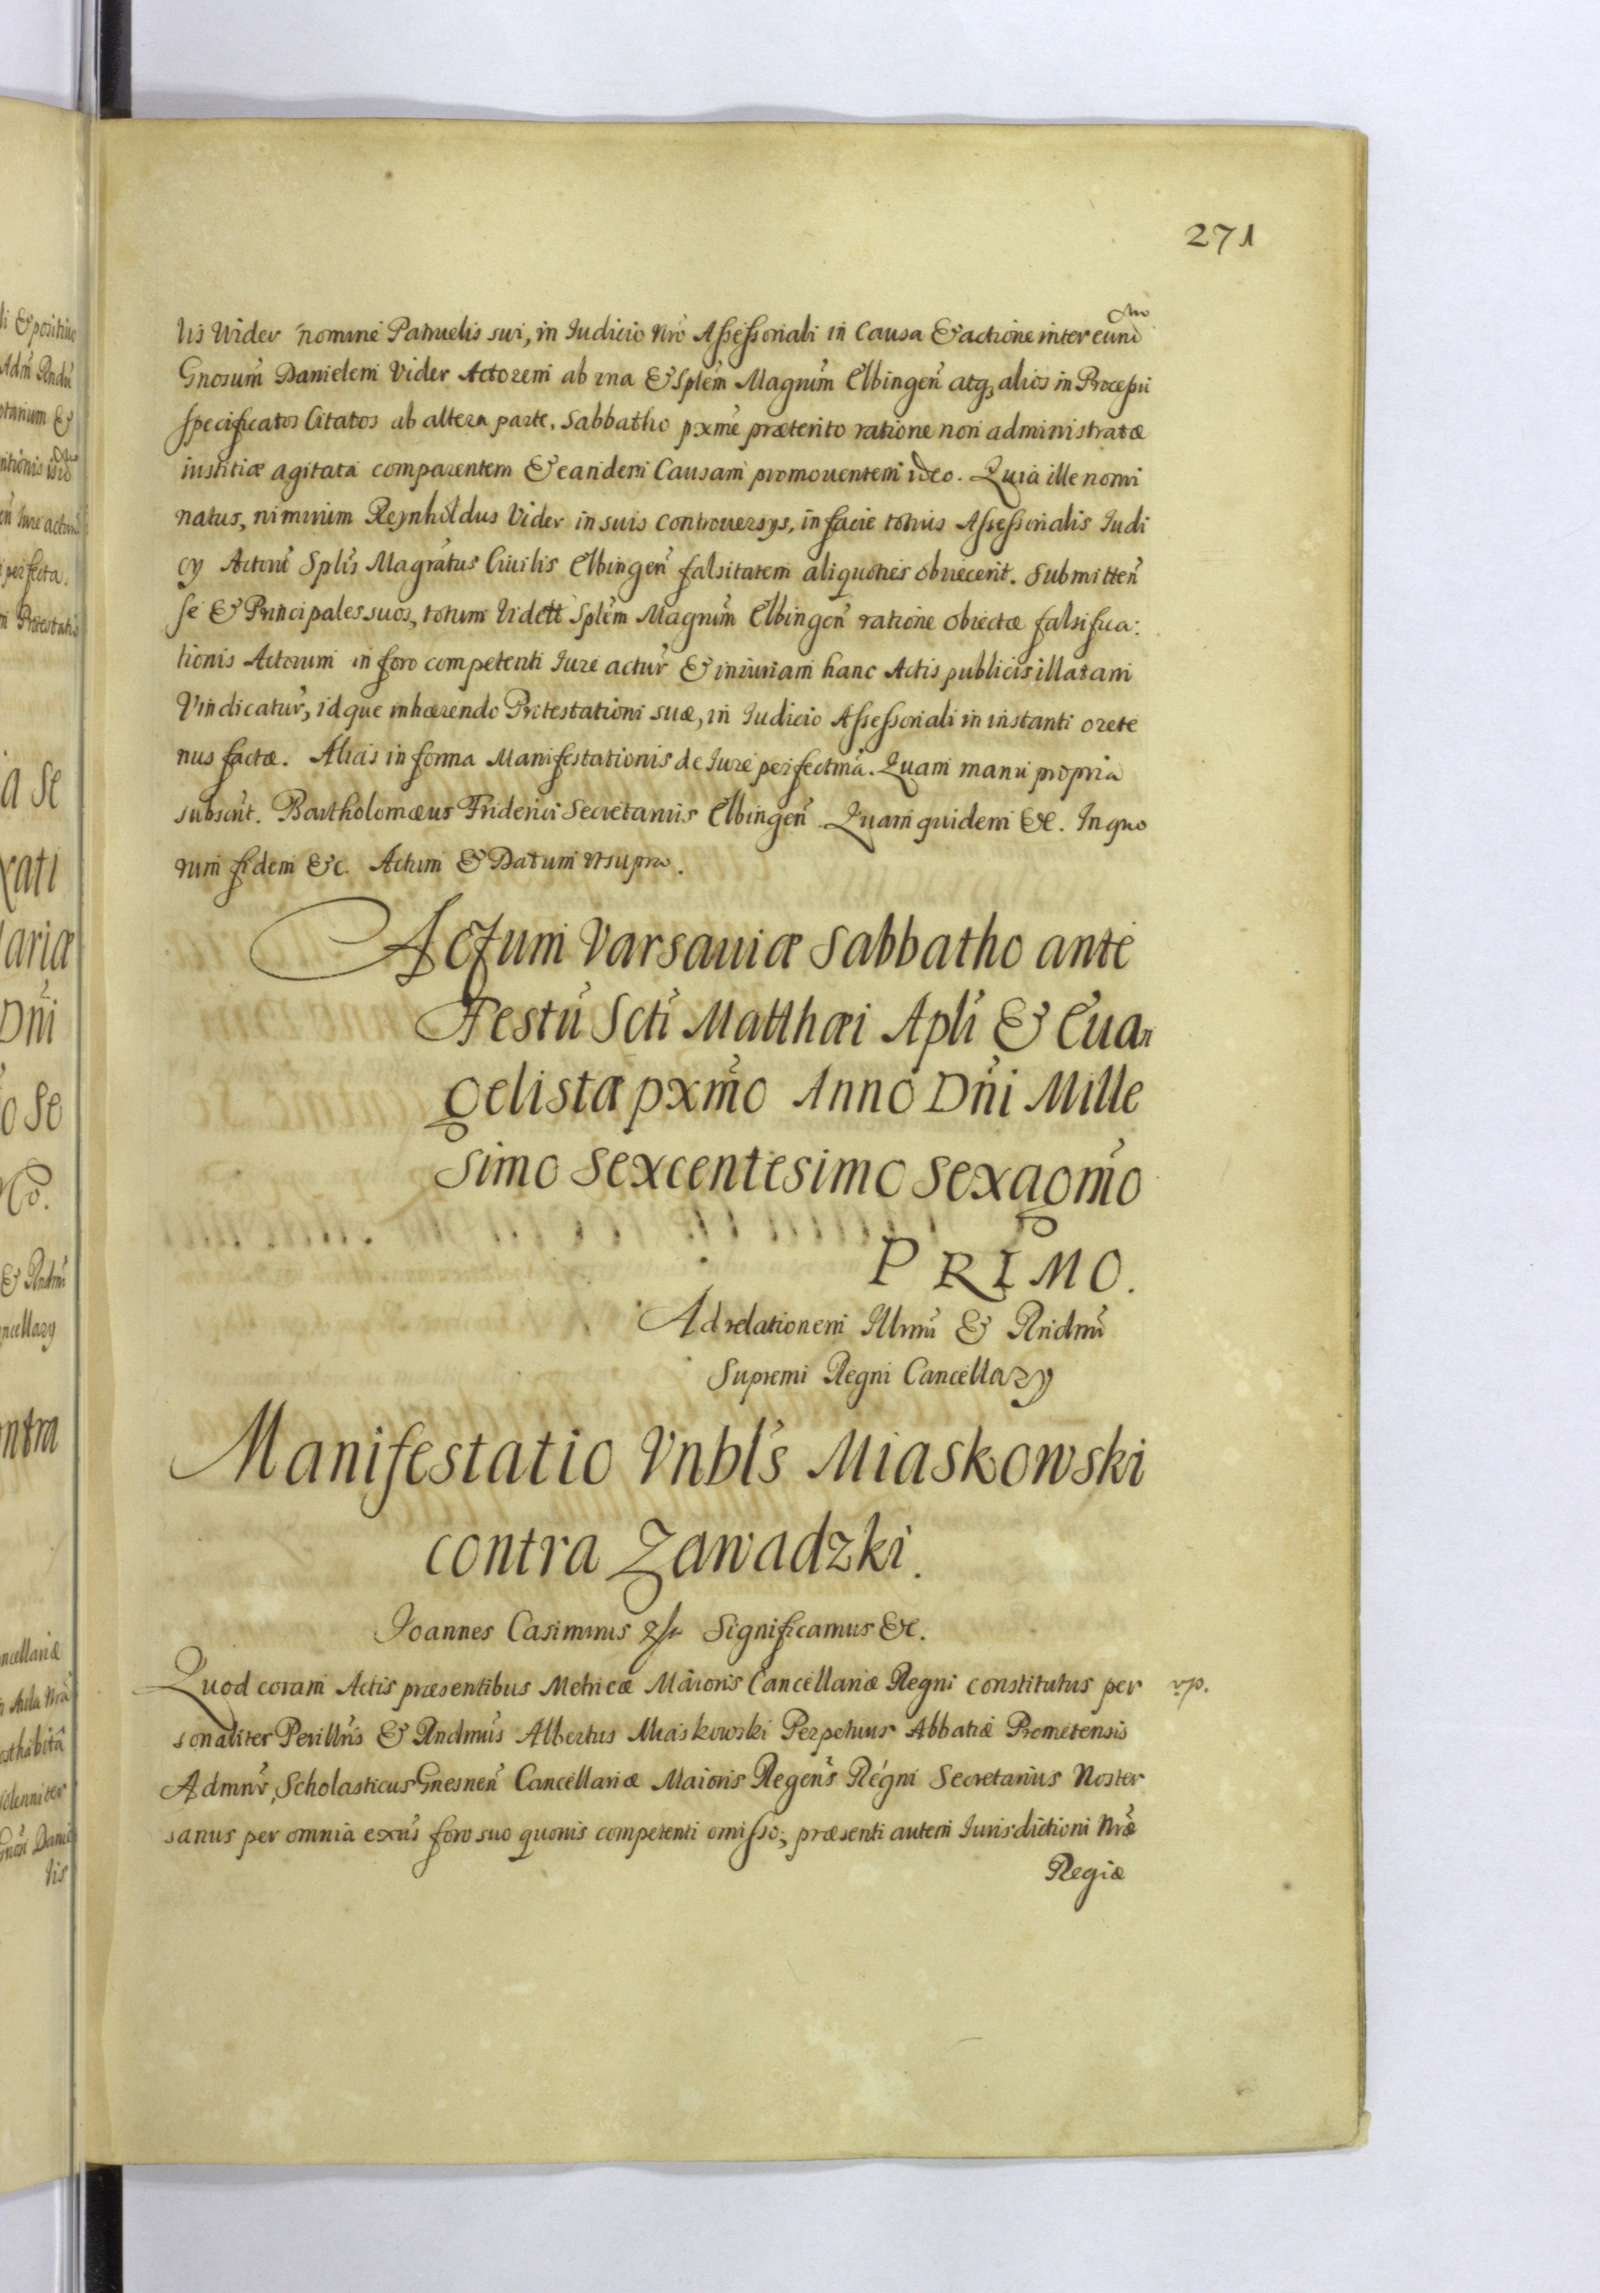 271
lis Vider nomine Patruelis sui, in Iudicio Nro Assessoriali in Causa & actione inter eund
Gnosum Danielem Vider Actorem ab vna & Splem Magrum Elbingen atq alios in Processu
specificatos Citatos ab altera parte. Sabbatho pxme præterito ratione non administratæ
iustitiæ agitata comparentem & eandem Causam promouentem ideo. Quia ille nomi
natus, nimirum Reynholdus Vider in suis Controuersys, in facie totius Assessorialis Iudi
cy Actoru Splis Magratus Ciuilis Elbingen falsitatem aliquoties obiecerit. Submitten
se & Principales suos, totum videlt Splem Magrum Elbingen ratione obiectæ falsifica:
tionis Actorum in foro competenti Iure actur & iniuriam hanc Actis publicis illatam
Vindicatur, idque inhærendo Protestationi suæ, in Iudicio Assessoriali in instanti orete
nus factæ. Alias in forma Manifestationis de Iure perfectma. Quam manu propria
subscrit. Bartholomæus Friderici Secretarius Elbingen Quam quidem &c. In quo
rum fidem &c. Actum & Datum vtsupra.
Actum Varsauiæ Sabbatho ante
Festu Scti Matthæi Apli & Euan
gelistæ pxmo Anno Dni Mille
simo Sexcentesimo Sexagomo
PRIMO.
Ad relationem Illrmi & Rndmi
Supremi Regni Cancellary
Manifestatio Vnbls Miaskowski
contra Zawadzki.
Ioannes Casimirus Significamus &c.
Quod coram Actis præsentibus Metricæ Maioris Cancellariæ Regni constitutus per
sonaliter Perillris & Rndmus Albertus Miaskowski Perpetuus Abbatiæ Premetensis
Admnr, Scholasticus Gnesnen Cancellariæ Maioris Regens Regni Secretarius Noster
sanus per omnia exns foro suo quouis competenti omisso, præsenti autem Iurisdictioni Nræ
Regiæ